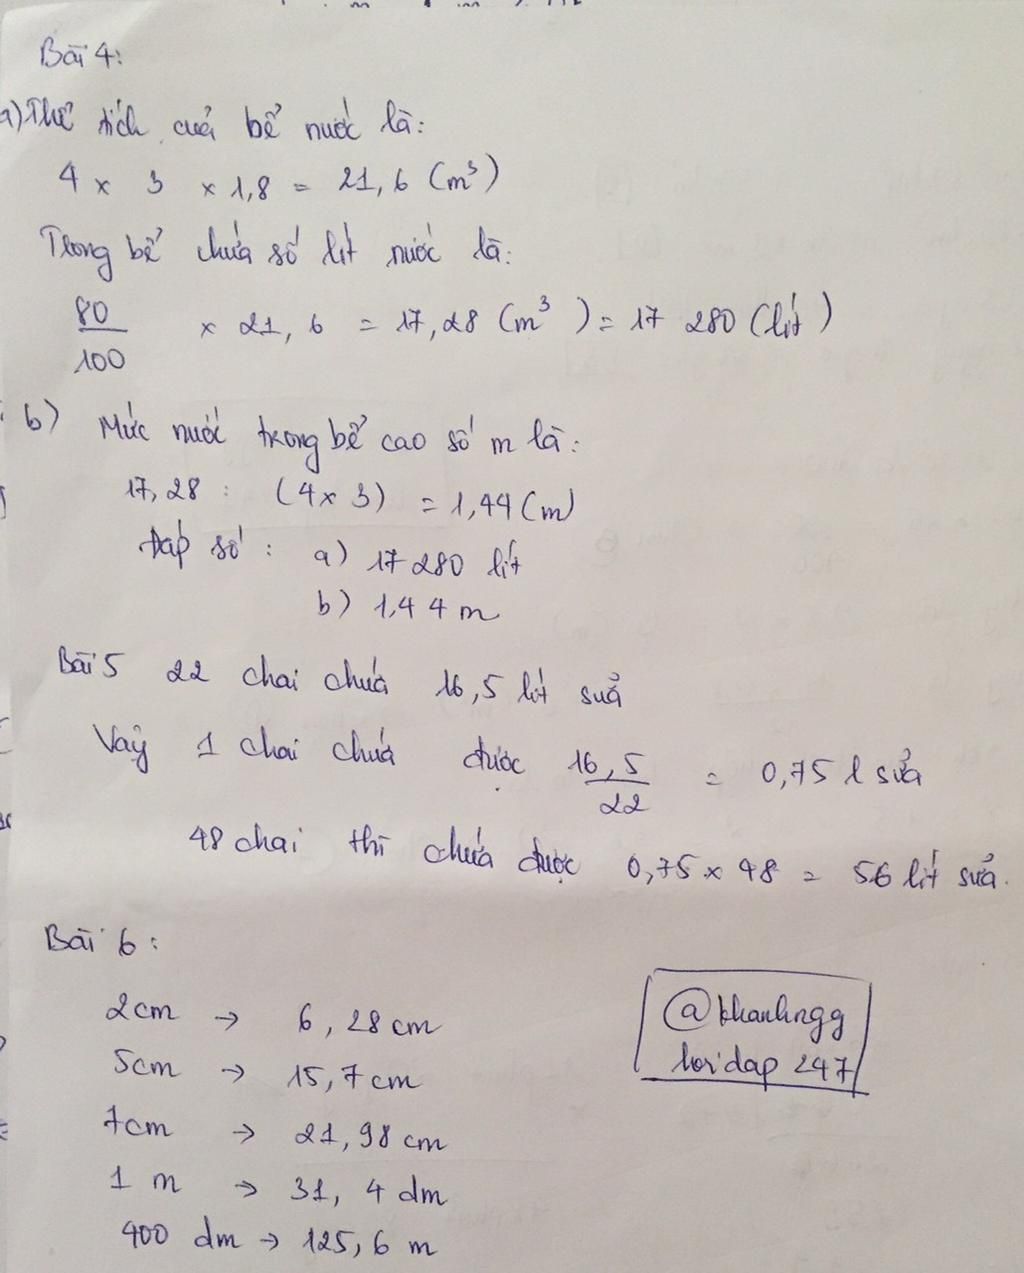 Bài 4:
a) Thể tích của bể nước là:
4 x 3 x 1,8 = 21,6 (m³)
Trong bể chứa số lít nước là:
80/100 x 21,6 = 17,28 (m³) = 17 280 (lít)
b) Mức nước trong bể cao số m là:
17,28 : (4 x 3) = 1,44 (m)
Đáp số : a) 17 280 lít
b) 1,44 m
Bài 5 22 chai chứa 16,5 lít sữa
Vậy 1 chai chứa được 16,5/22 = 0,75 l sữa
48 chai thì chứa được 0,75 x 48 = 56 lít sữa.
Bài 6 :
2cm → 6,28 cm
5cm → 15,7 cm
7cm → 21,98 cm
1 m → 31,4 dm
400 dm → 125,6 m
@khanhngg
loidap 247